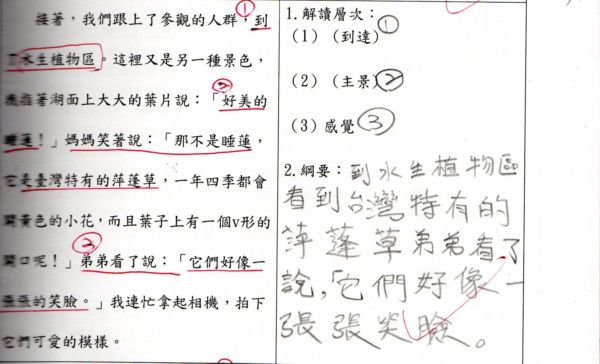 接著，我們跟上了參觀的人群，到
了水生植物區。這裡又是另一種景色，
我指著湖面上大大的葉片說：「好美的
睡蓮！」媽媽笑著說：「那不是睡蓮，
它是臺灣特有的萍蓬草，一年四季都會
開黃色的小花，而且葉子上有一個V形的
開口呢！」弟弟看了說：「它們好像一
張張的笑臉。」我連忙拿起相機，拍下
它們可愛的模樣。
①
②
③
1.解讀層次：
(1)（到達）①
(2)（主景）②
(3) 感覺 ③
2.綱要：到水生植物區
看到台灣特有的
萍蓬草弟弟看了
說，「它們好像一
張張笑臉。